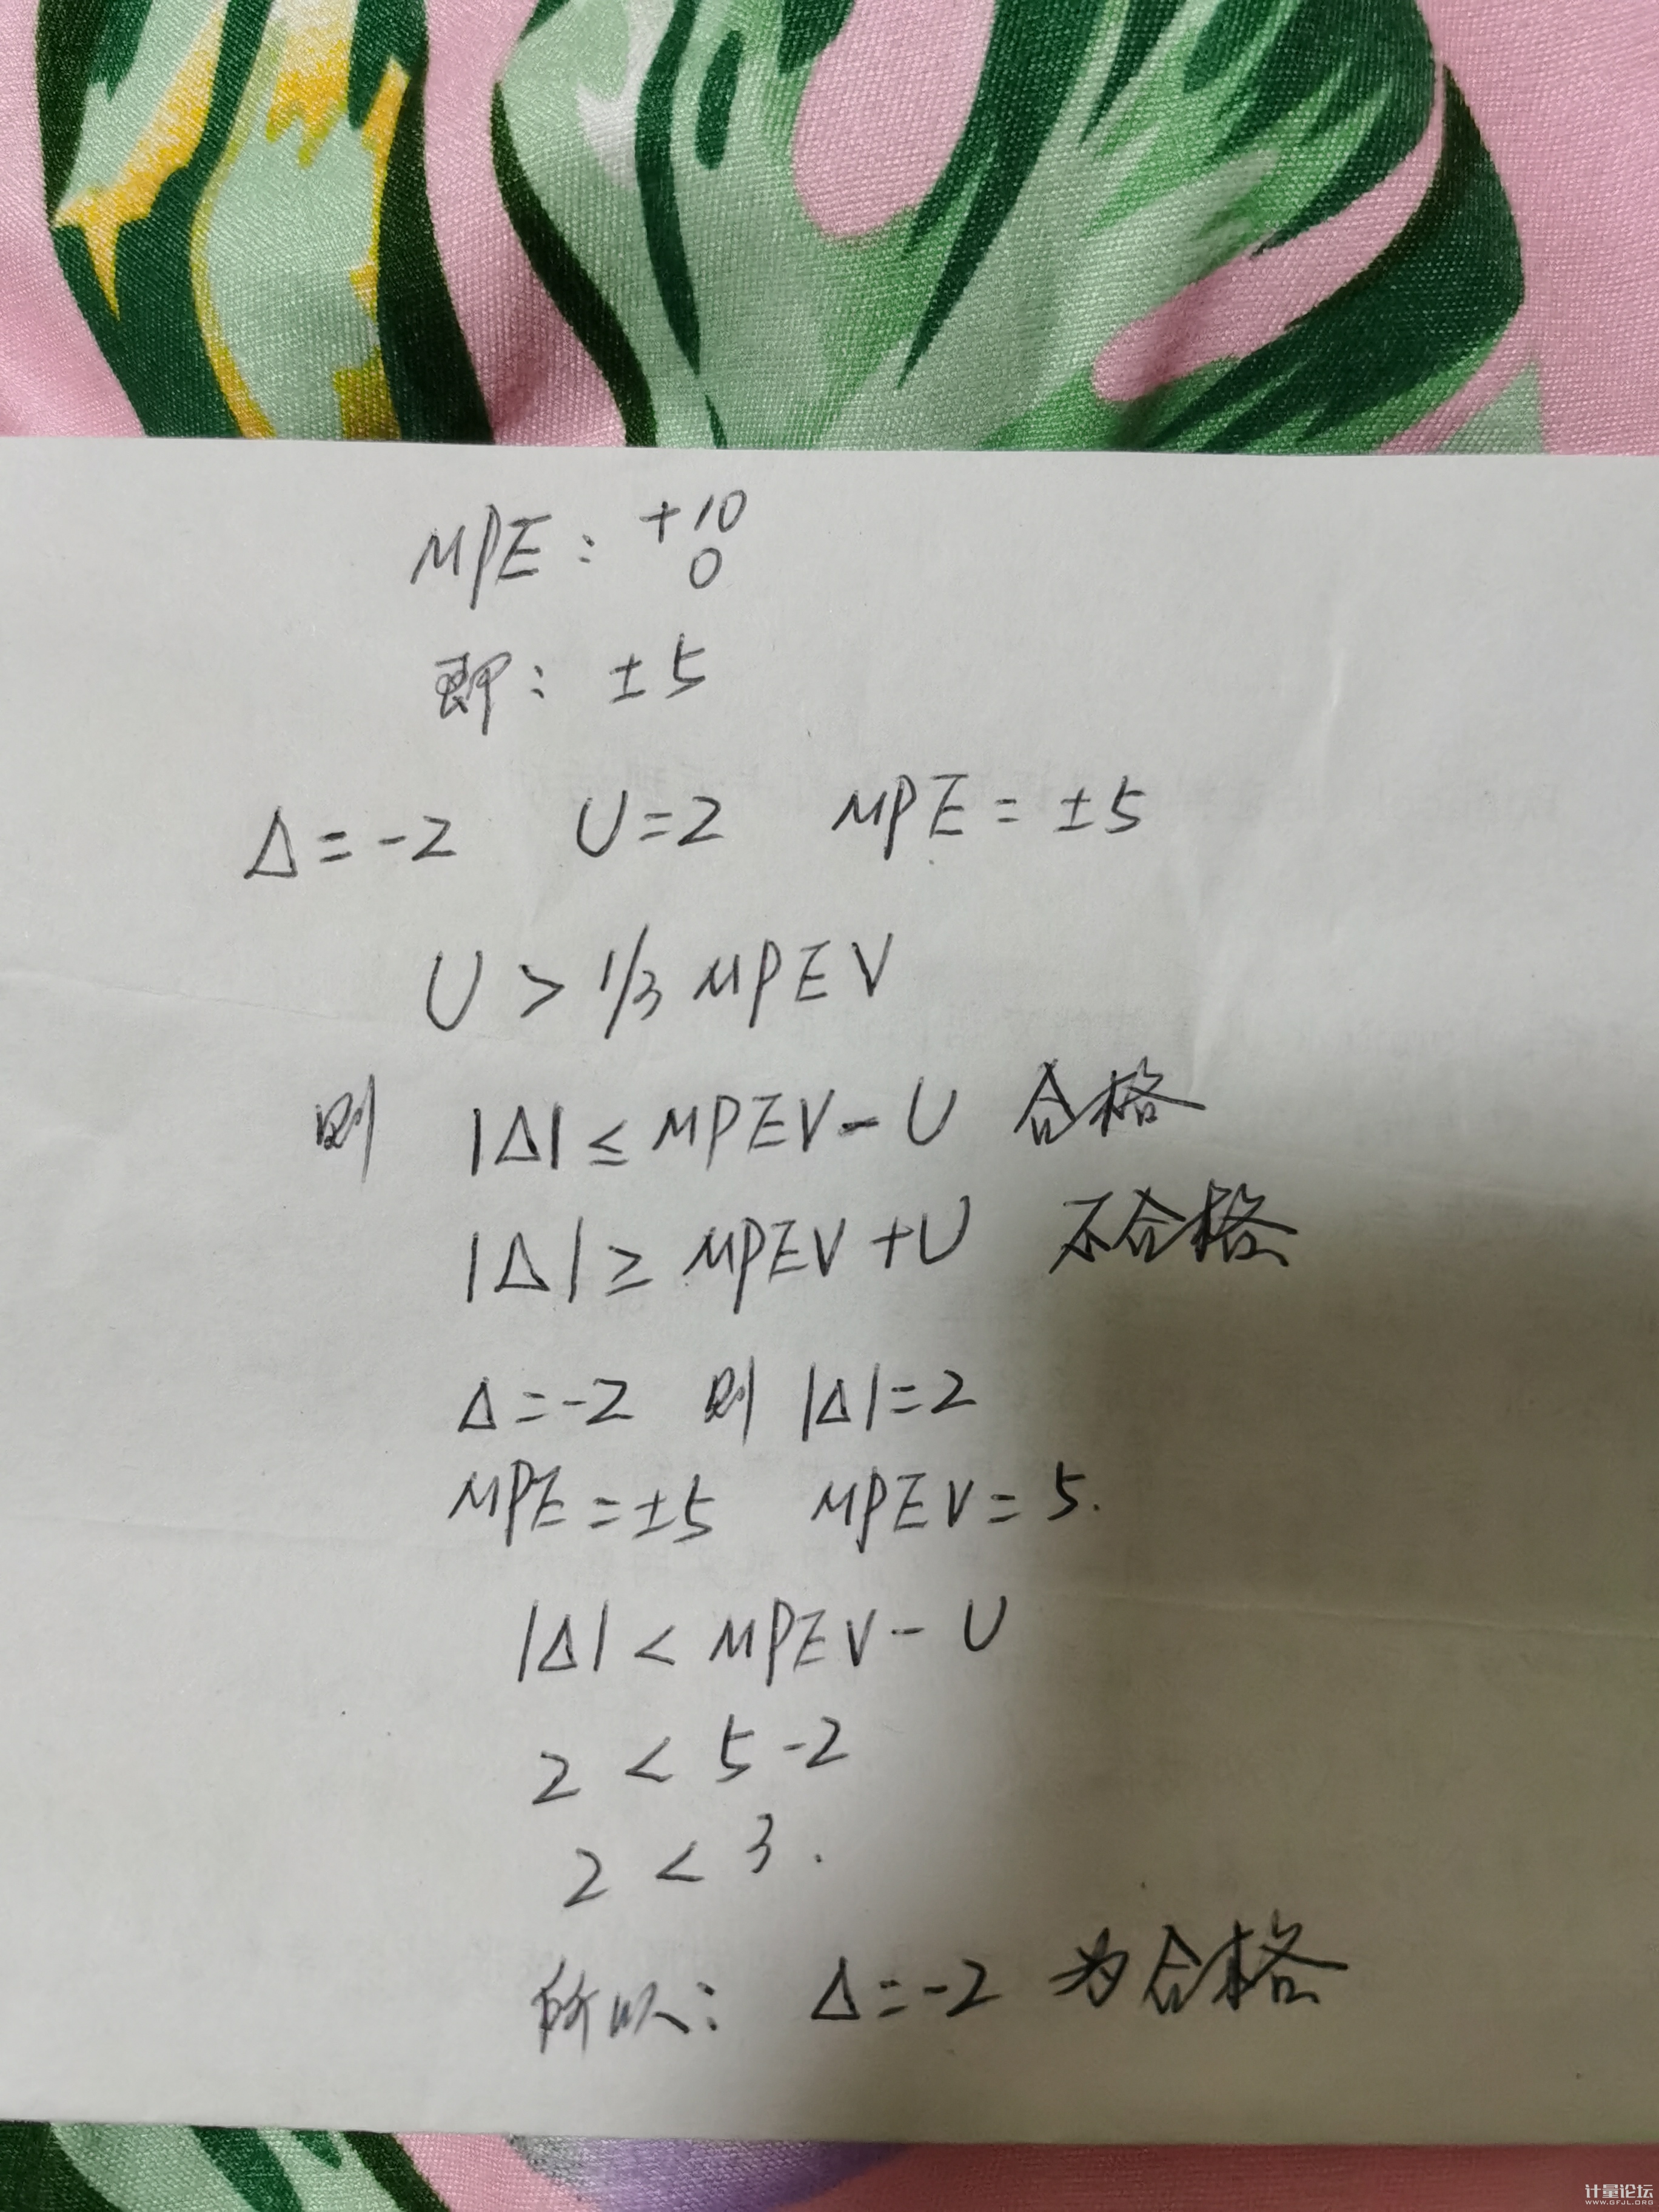 MPE: +10
0
即: ±5
Δ=-2 U=2 MPE=±5
U>1/3 MPEV
则 |Δ|≤MPEV-U 合格
|Δ|≥MPEV+U 不合格
Δ=-2 则 |Δ|=2
MPE=±5 MPEV=5.
|Δ|<MPEV-U
2<5-2
2<3.
所以: Δ=-2 为合格
计量论坛
WWW.GFJL.ORG